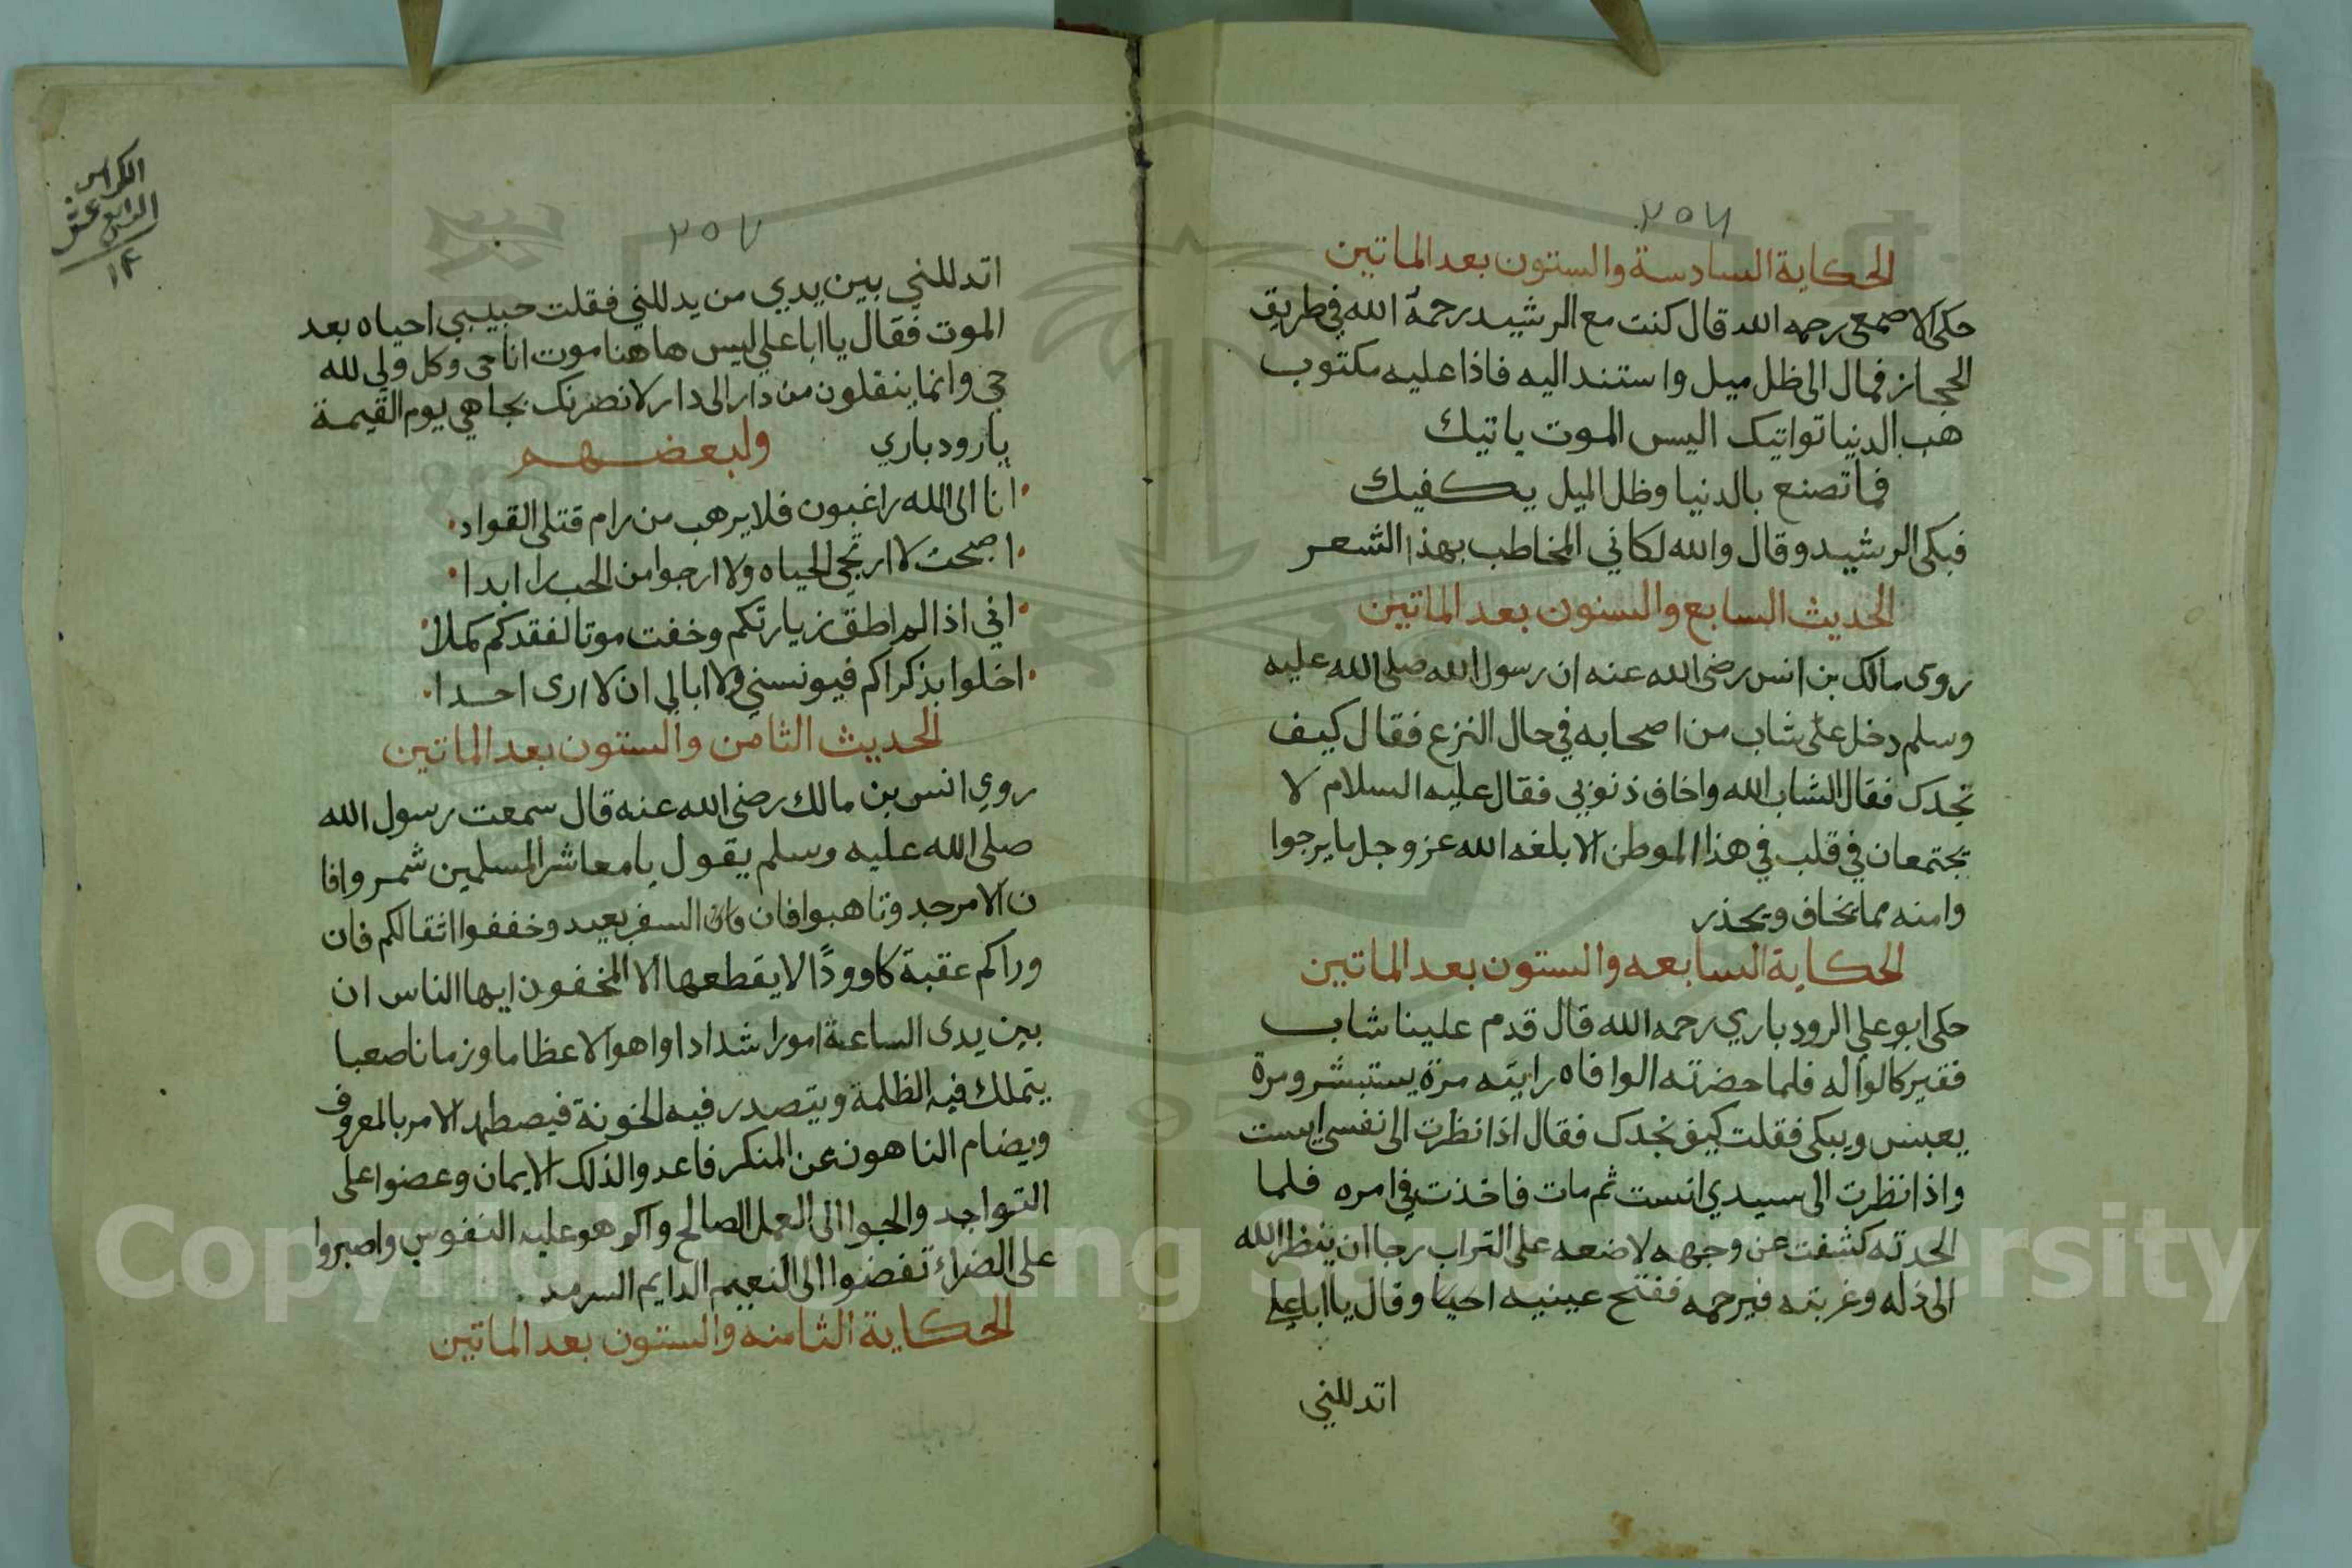 ٢٥٦
الحكاية السادسة والستون بعد الماتين
حكى الاصمعى رحمه الله قال كنت مع الرشيد رحمة الله في طريق
الحجاز فمال الى ظل ميل واستند اليه فاذا عليه مكتوب
هب الدنيا تواتيك اليس الموت ياتيك
فما تصنع بالدنيا وظل الميل يكفيك
فبكى الرشيد وقال والله لكاني المخاطب بهذا الشعر
الحديث السابع والستون بعد الماتين
روى مالك بن انس رضى الله عنه ان رسول الله صلى الله عليه
وسلم دخل على شاب من اصحابه في حال النزع فقال كيف
تجدك فقال الشاب الله واخاف ذنوبي فقال عليه السلام لا
يجتمعان في قلب في هذا الموطن الا بلغه الله عز وجل ما يرجوا
وامنه مما يخاف ويحذر
الحكاية السابعه والستون بعد الماتين
حكى ابو علي الرودباري رحمه الله قال قدم علينا شاب
فقير كالواله فلما حضرته الوافاه رايته مرة يستبشر ومرة
يعبس ويبكى فقلت كيف تجدك فقال اذا نظرت الى نفسي ايست
واذا نظرت الى سيدي انست ثم مات فاخذت في امره فلما
الحدته كشفت عن وجهه لاضعه على التراب رجا ان ينظر الله
الى ذله وغربته فيرحمه ففتح عينيه احيا وقال يا ابا علي
اتدللني
الكراس
الرابع عشر
١٤
٢٥٧
اتدللني بين يدي من يدللني فقلت حبيبي احياه بعد
الموت فقال يا ابا علي ليس هاهنا موت انا حى وكل ولي لله
حي وانما ينقلون من دار الى دار لانصرنك بجاهي يوم القيمة
يا رودباري ولبعضهم
انا الى الله راغبون فلا يرهب من رام قتلى القواد
اصبحت لا ارتجي الحياه ولا ارجوا من الحب را ابدا
اني اذا لم اطق زيارتكم وخفت موتا لفقدكم كملا
اخلوا بذكراكم فيونسني ولا ابالي ان لا ارى احدا
الحديث الثامن والستون بعد الماتين
روي انس بن مالك رضى الله عنه قال سمعت رسول الله
صلى الله عليه وسلم يقول يا معاشر المسلمين شمروا فا
ن الامر جد وتاهبوا فان وان السفر بعيد وخففوا اثقالكم فان
وراكم عقبة كاوودًا لا يقطعها الا المخففون ايها الناس ان
بين يدى الساعة امورا شدادا واهوالا عظاما وزمانا صعبا
يتملك فيه الظلمة ويتصدر فيه الخونة فيصطهد الامر بالمعروف
ويضام الناهون عن المنكر فاعدوا لذلك الايمان وعضوا على
التواجد والجوا الى العمل الصالح واكرهو عليه النفوس واصبروا
على الضراء تفضوا الى النعيم الدايم السرمد
الحكاية الثامنه والستون بعد الماتين
Copyright © King Saud University